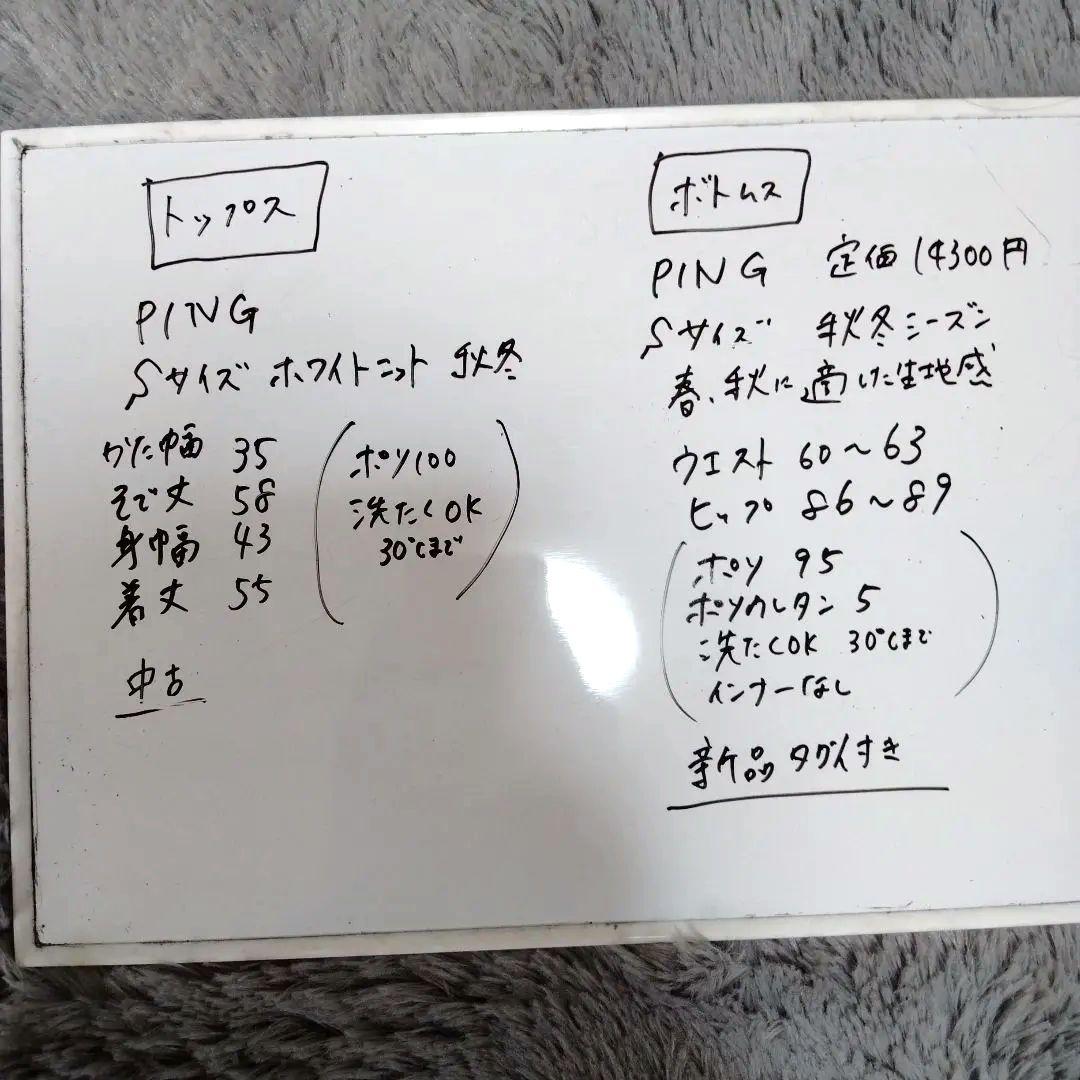 トップス
PING
Sサイズ ホワイトニット 秋冬
かた幅 35
そで丈 58
身幅 43
着丈 55
ポリ100
洗たくOK
30℃まで
中古
ボトムス
PING 定価14300円
Sサイズ 秋冬シーズン
春、秋に適した生地感
ウエスト 60〜63
ヒップ 86〜89
ポリ 95
ポリウレタン 5
洗たくOK 30℃まで
インナーなし
新品タグ付き